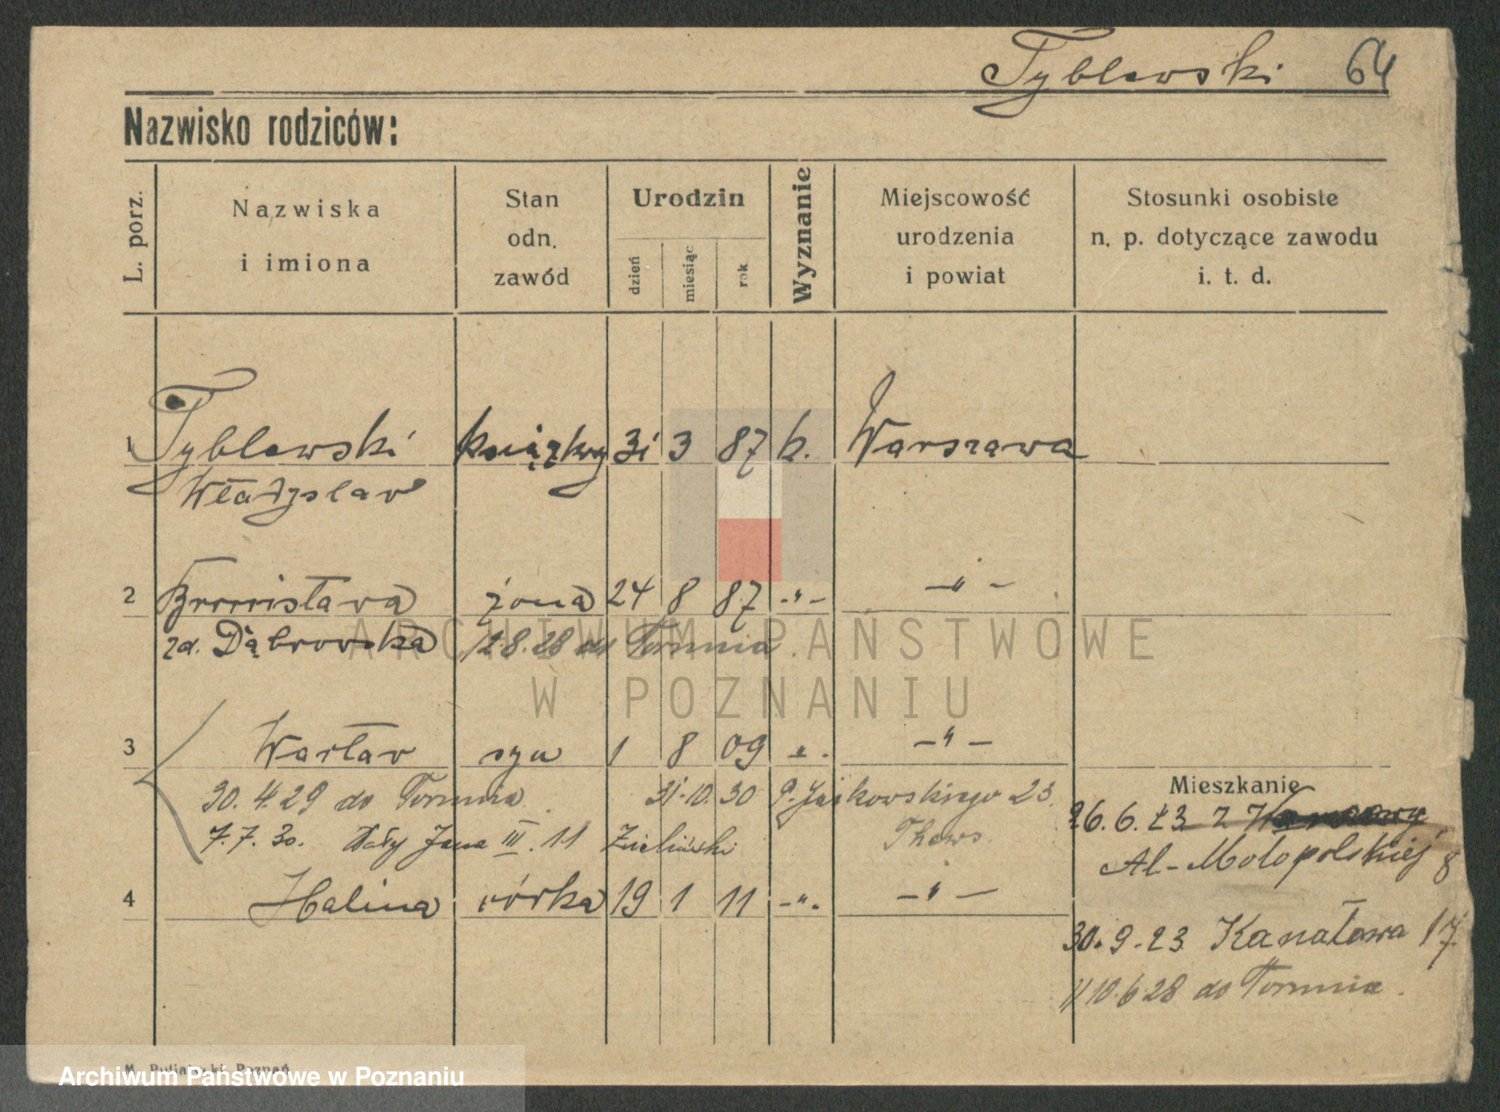 Tyblewski 64
Nazwisko rodziców:
L. porz.
Nazwiska
i imiona
Stan
odn.
zawód
Urodzin
dzień
miesiąc
rok
Wyznanie
Miejscowość
urodzenia
i powiat
Stosunki osobiste
n. p. dotyczące zawodu
i. t. d.
1 Tyblewski 31 3 87 k. Warszawa
Władysław
2 Bronisława żona 24 8 87 -"- -"-
zd. Dąbrowska 12.8.28 do Torunia
3 Wacław syn 1 8 09 -"-
30.4.29 do Torunia. 31-10.30 P. Jackowskiego 23.
7.7.30. Wały Jana III. 11 Zieliński
4 Halina córka 19 1 11 -"- -"-
Mieszkanie
26.6.23 z Warszawy
Al-Małopolskiej 8
30.9.23 Kanałowa 17.
10.6.28 do Torunia.
ARCHIWUM PAŃSTWOWE
W POZNANIU
Archiwum Państwowe w Poznaniu